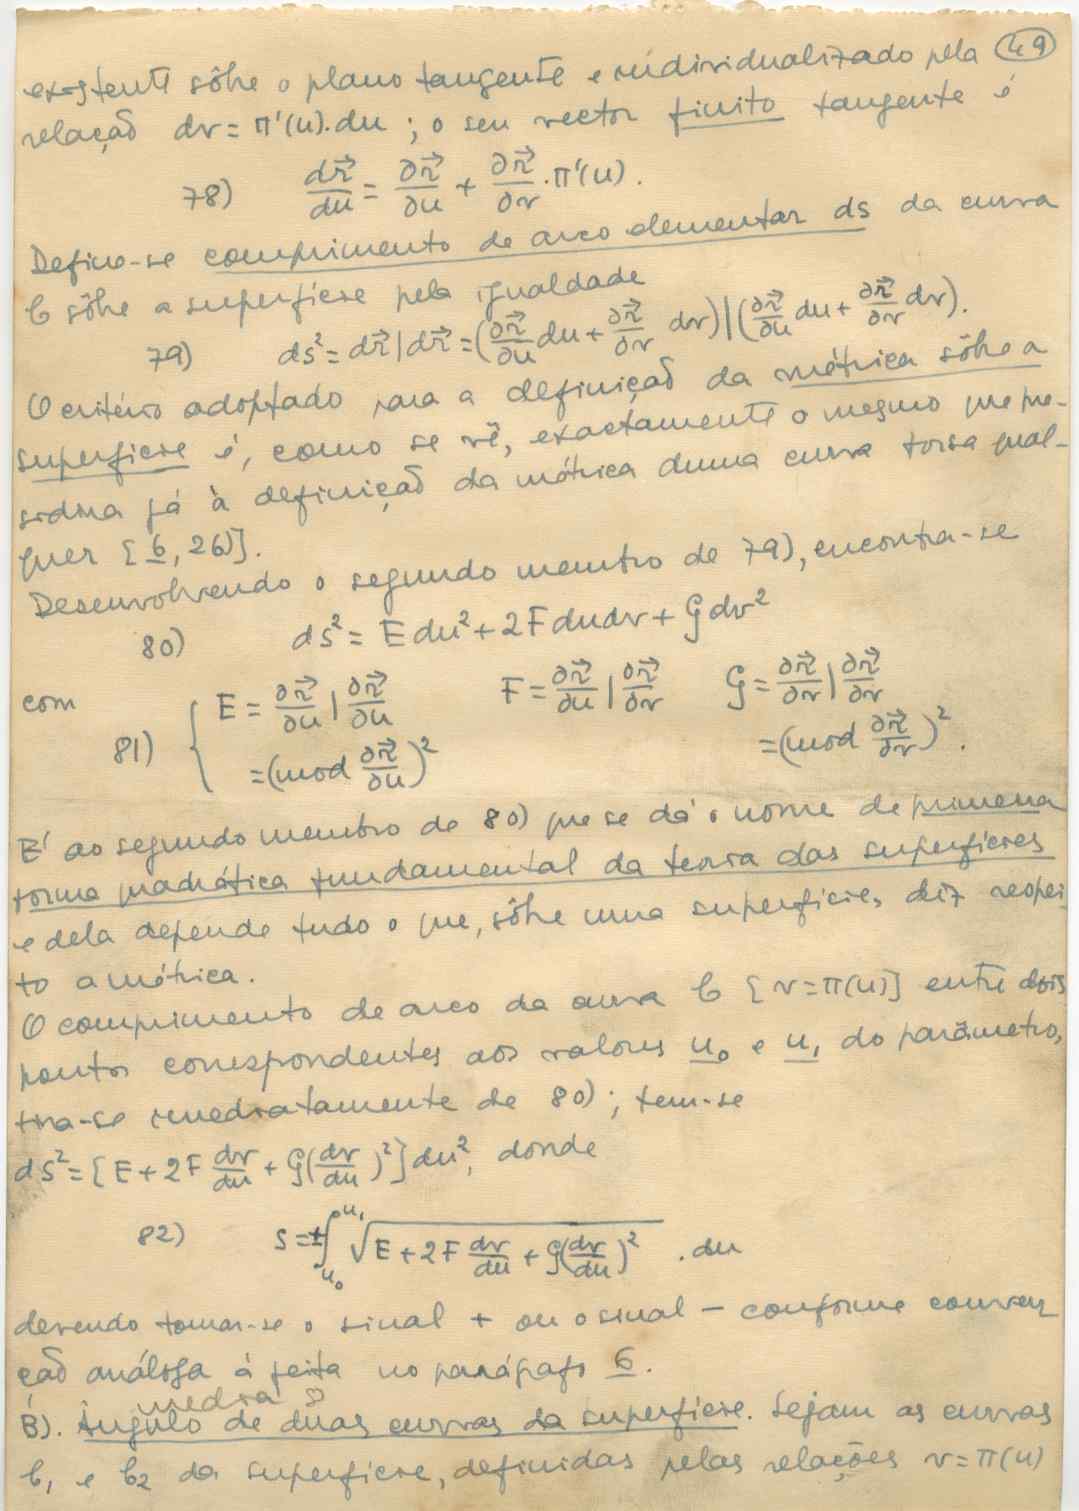 49
existente sôbre o plano tangente e individualizado pela
relação dv = π'(u).du ; o seu vector finito tangente é
78) dr⃗/du = ∂r⃗/∂u + ∂r⃗/∂v . π'(u).
Define-se comprimento de arco elementar ds da curva
C sôbre a superfície pela igualdade
79) ds² = dr⃗ | dr⃗ = (∂r⃗/∂u du + ∂r⃗/∂v dv) | (∂r⃗/∂u du + ∂r⃗/∂v dv).
O critério adoptado para a definição da métrica sôbre a
superfície é, como se vê, exactamente o mesmo que pre-
sidira já à definição da métrica duma curva torsa qual-
quer [6, 26)].
Desenvolvendo o segundo membro de 79), encontra-se
80) ds² = E du² + 2F du dv + G dv²
com
81) { E = ∂r⃗/∂u | ∂r⃗/∂u F = ∂r⃗/∂u | ∂r⃗/∂v G = ∂r⃗/∂v | ∂r⃗/∂v
= (mod ∂r⃗/∂u)² = (mod ∂r⃗/∂v)².
E' ao segundo membro de 80) que se dá o nome de primeira
forma quadrática fundamental da teoria das superfícies
e dela depende tudo o que, sôbre uma superfície, diz respei-
to a métrica.
O comprimento de arco da curva C [v = π(u)] entre dois
pontos correspondentes aos valores u₀ e u₁ do parâmetro,
tira-se imediatamente de 80); tem-se
ds² = [E + 2F dv/du + G(dv/du)²] du², donde
82) s = ± ∫ᵤ₀ᵘ¹ √(E + 2F dv/du + G(dv/du)²) . du
devendo tomar-se o sinal + ou o sinal − conforme conven
ção análoga à feita no parágrafo 6.
B). Ângulo de duas curvas da superfície. Sejam as curvas
C₁ e C₂ da superfície, definidas pelas relações v = π(u)